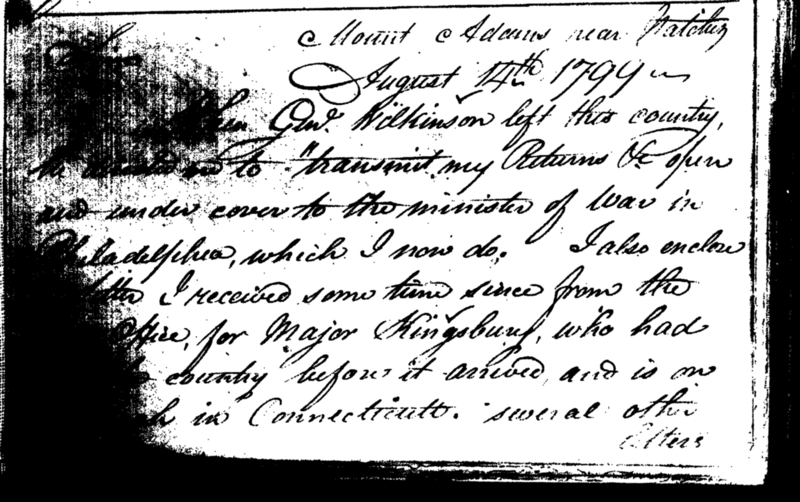 Mount Adams near Natchez
Sir
August 14th 1799
When Genl. Wilkinson left this country,
he directed me to "transmit my Returns &c open
and under cover to the minister of War in
Philadelphia, which I now do. I also enclose
letter I received some time since from the
office, for Major Kingsbury, who had
country before it arrived, and is on
in Connecticutt. several other
letters